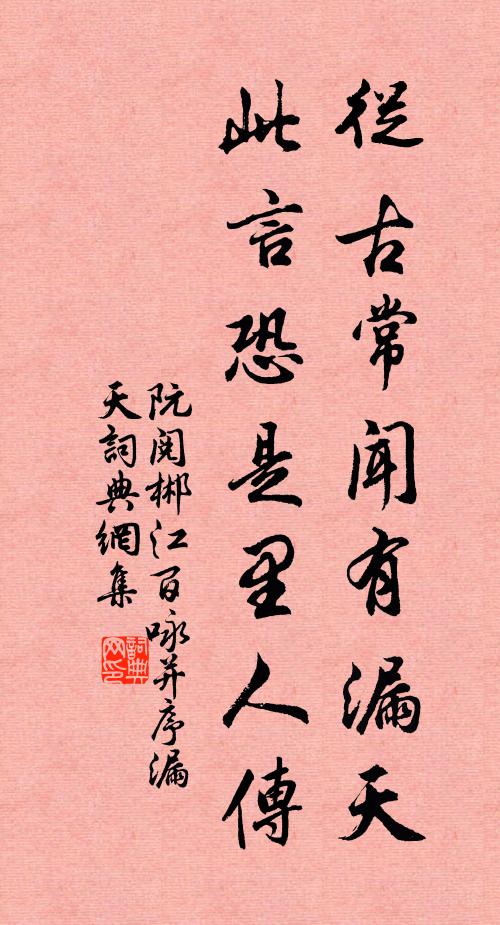 從古常聞有漏天
此言恐是里人傳
阮閱郴江百咏并序漏
天詞典網集
詞典
网印